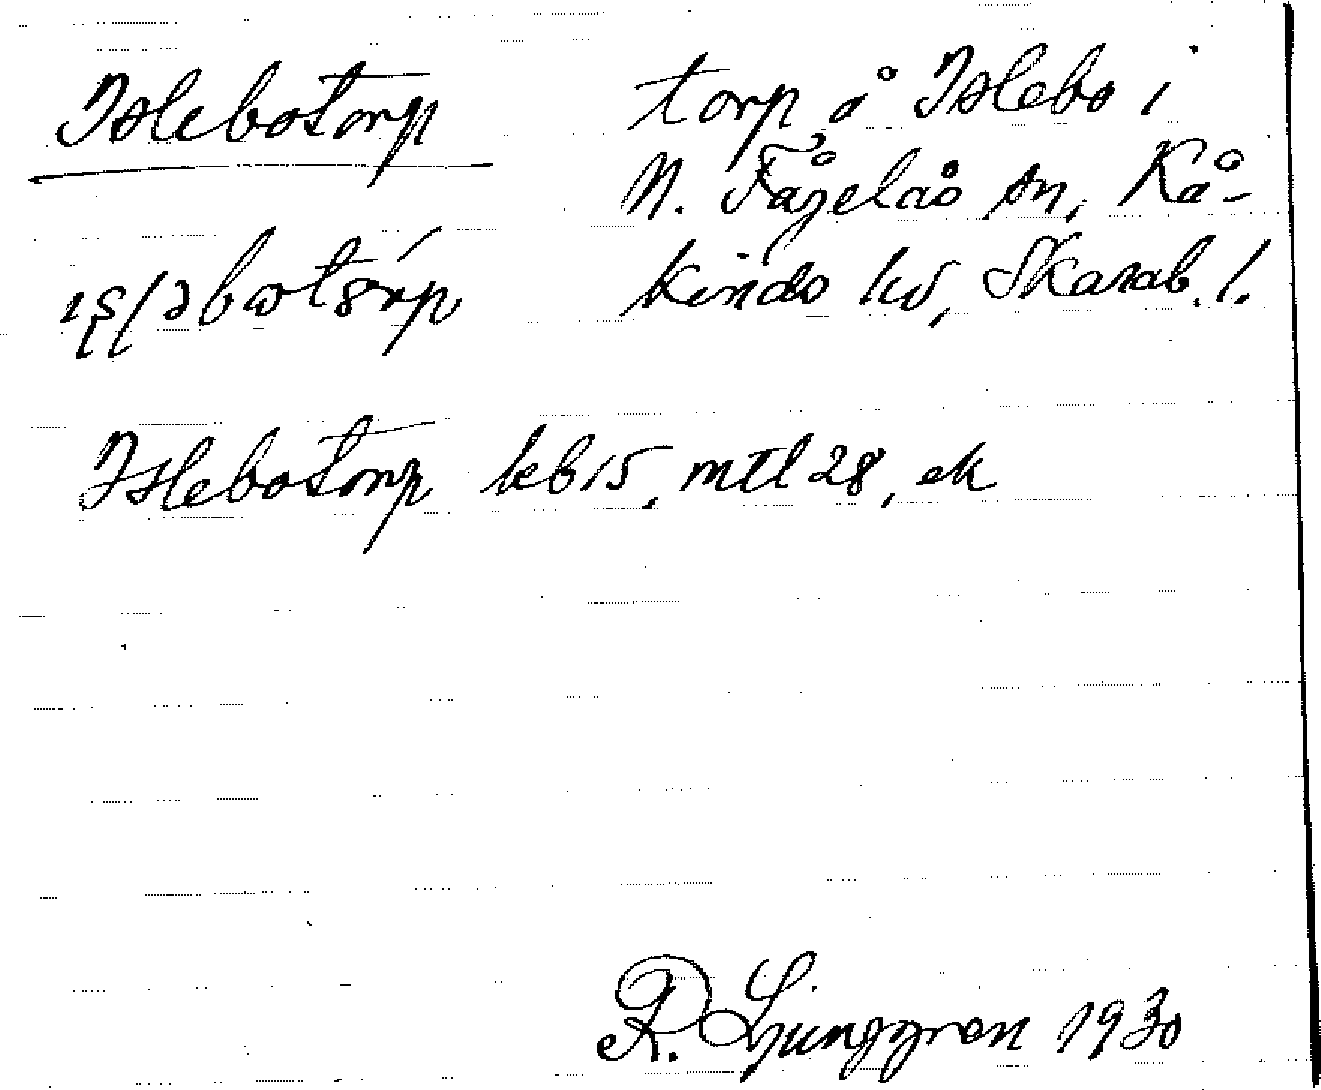 Islebotorp
torp å Islebo i
N. Fågelås sn, Kå-
kinds hd, Skarab. l.
Islebotorp kb 15, mtl 28, ek
R. Ljunggren 1930